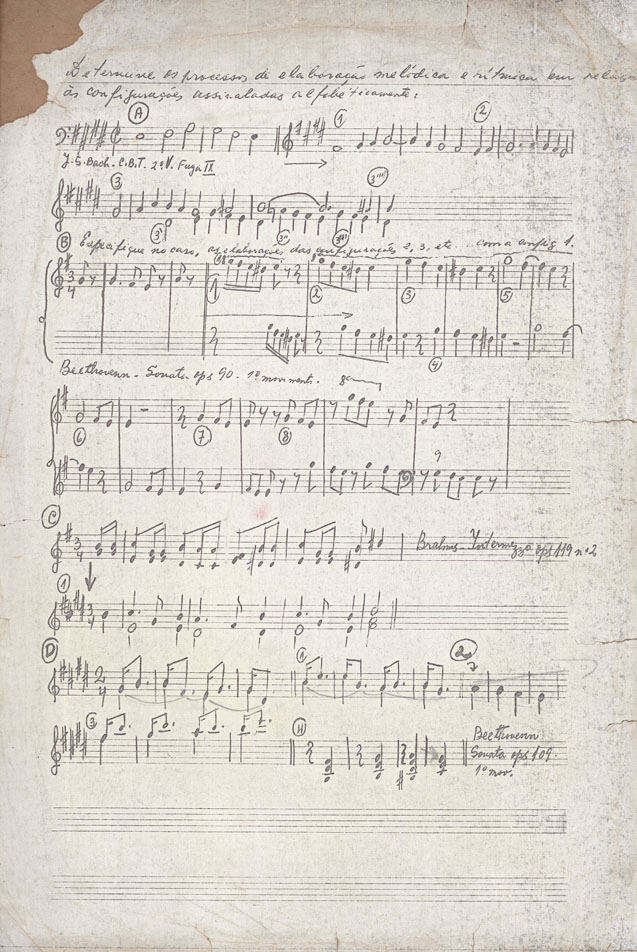 Determine os processos de elaboração melódica e rítmica em relação
às configurações assinaladas alfabéticamente:
A
1
2
J. S. Bach. C.B.T. 2º V. Fuga IX
3
3'
3''
3'''
3''''
B Especifique no caso, as elaborações das configurações 2, 3, etc. com a config 1.
1
2
3
5
4
Beethovenn - Sonata ops 90. 1º movimento.
8ª
6
7
8
9
C
Brahms - Intermezzo ops 119 nº 2
1
D
1
2
3
H
Beethovenn
Sonata ops 109.
1º mov.